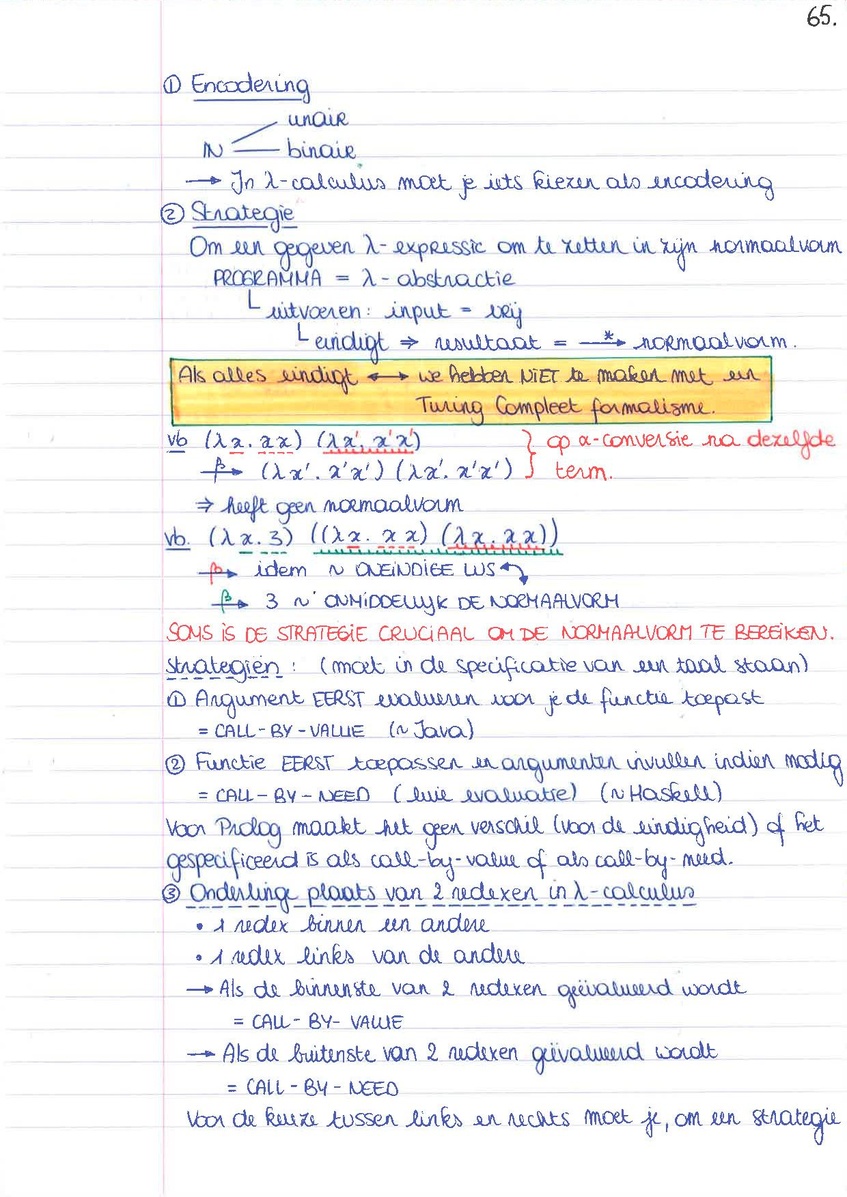 65.
① Encodering
unair
ℕ binair
→ In λ-calculus moet je iets kiezen als encodering
② Strategie
Om een gegeven λ-expressie om te zetten in zijn normaalvorm
PROGRAMMA = λ-abstractie
uitvoeren: input = vrij
eindigt ⇒ resultaat = —*→ normaalvorm.
Als alles eindigt ↔ we hebben NIET te maken met een
Turing Compleet formalisme.
vb (λx.xx) (λx'.x'x') } op α-conversie na dezelfde
—β→ (λx'.x'x') (λx'.x'x') } term.
⇒ heeft geen normaalvorm
vb. (λx.3) ((λx.xx) (λx.xx))
—β→ idem ~ ONEINDIGE LUS
—β→ 3 ~ ONMIDDELLIJK DE NORMAALVORM
SOMS IS DE STRATEGIE CRUCIAAL OM DE NORMAALVORM TE BEREIKEN.
strategiën : (moet in de specificatie van een taal staan)
① Argument EERST evalueren voor je de functie toepast
= CALL-BY-VALUE (~Java)
② Functie EERST toepassen en argumenten invullen indien nodig
= CALL-BY-NEED (luie evaluatie) (~Haskell)
Voor Prolog maakt het geen verschil (voor de eindigheid) of het
gespecificeerd is als call-by-value of als call-by-need.
③ Onderlinge plaats van 2 redexen in λ-calculus
• 1 redex binnen een andere
• 1 redex links van de andere
→ Als de binnenste van 2 redexen geëvalueerd wordt
= CALL-BY-VALUE
→ Als de buitenste van 2 redexen geëvalueerd wordt
= CALL-BY-NEED
Voor de keuze tussen links en rechts moet je, om een strategie